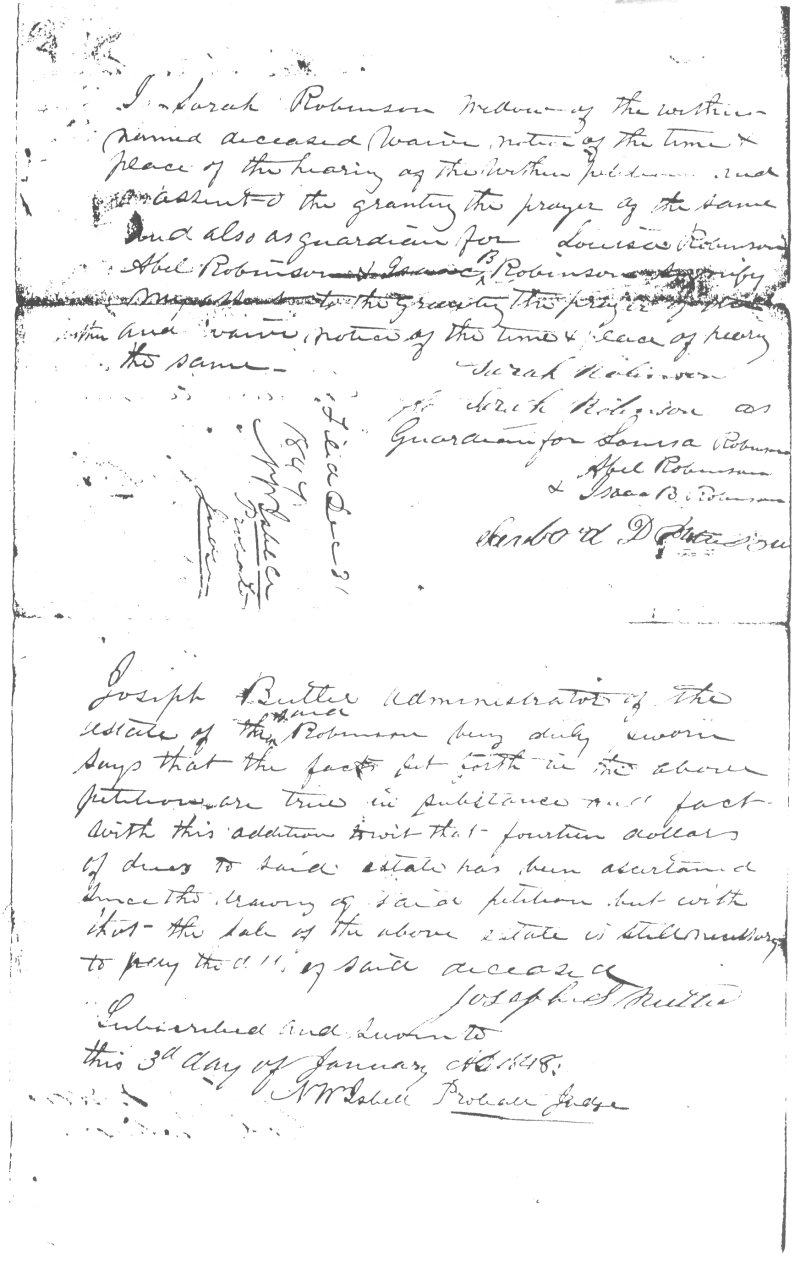 I Sarah Robinson Widow of the within
named deceased Waive notice of the time &
place of the hearing of the within petition and
assent to the granting the prayer of the same
and also as guardian for Louisa Robinson
Abel Robinson & Isaac B Robinson
to the granting the prayer of
and waive notice of the time & place of hearing
the same -
Sarah Robinson
Sarah Robinson as
Guardian for Louisa Robinson
Abel Robinson
& Isaac B. Robinson
Filed Dec 31
1847
N W Isbell
Probate
Judge
Joseph Butler administrator of the
estate of the said Robinson being duly sworn
says that the facts set forth in the above
petition are true in substance and fact
with this addition to wit that fourteen dollars
of dues to said estate has been ascertained
since the drawing of said petition but with
that the sale of the above estate is still necessary
to pay the of said deceased
Joseph Butler
Subscribed and sworn to
this 3d day of January AD 1848.
N W Isbell Probate Judge